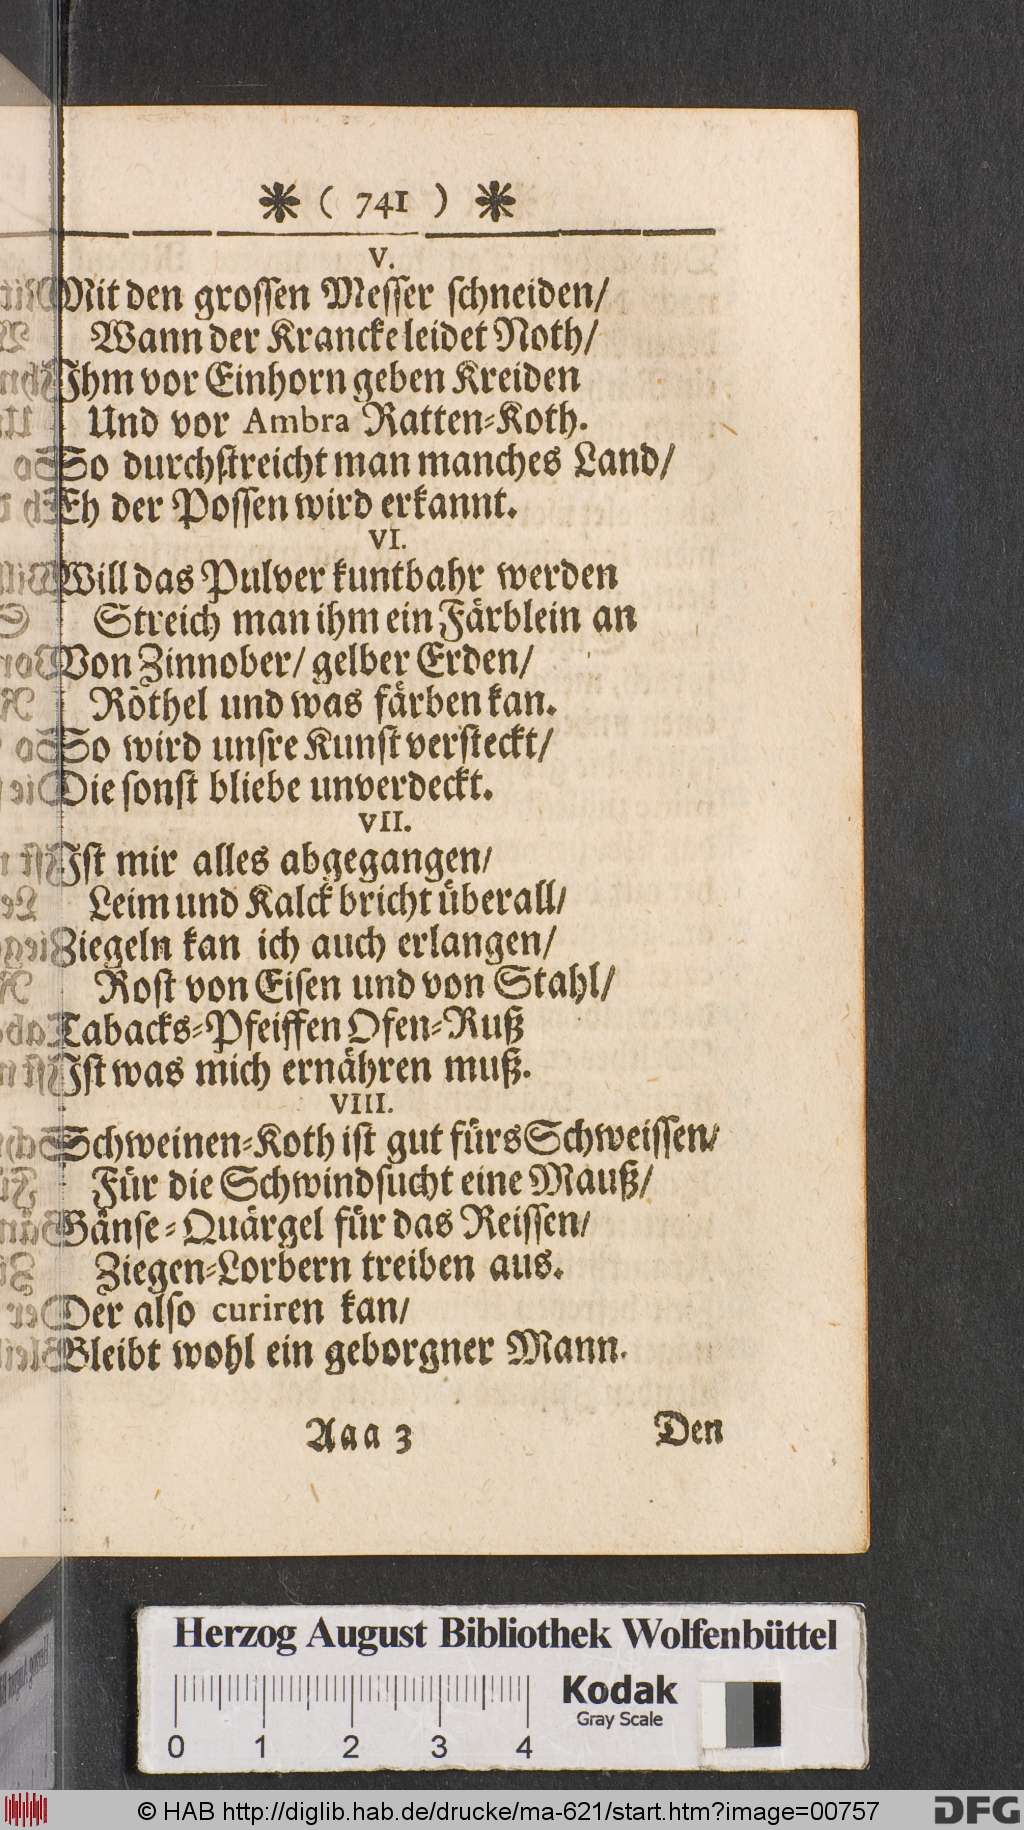 * ( 741 ) *
V.
Mit den grossen Messer schneiden/
Wann der Krancke leidet Noth/
Ihm vor Einhorn geben Kreiden
Und vor Ambra Ratten-Koth.
So durchstreicht man manches Land/
Eh der Possen wird erkannt.
VI.
Will das Pulver kuntbahr werden
Streich man ihm ein Färblein an
Von Zinnober/ gelber Erden/
Röthel und was färben kan.
So wird unsre Kunst versteckt/
Die sonst bliebe unverdeckt.
VII.
Ist mir alles abgegangen/
Leim und Kalck bricht überall/
Ziegeln kan ich auch erlangen/
Rost von Eisen und von Stahl/
Tabacks-Pfeiffen Ofen-Ruß
Ist was mich ernähren muß.
VIII.
Schweinen-Koth ist gut fürs Schweissen/
Für die Schwindsucht eine Mauß/
Gänse-Quärgel für das Reissen/
Ziegen-Lorbern treiben aus.
Der also curiren kan/
Bleibt wohl ein geborgner Mann.
Aaa 3 Den
Herzog August Bibliothek Wolfenbüttel
Kodak
Gray Scale
0 1 2 3 4
© HAB http://diglib.hab.de/drucke/ma-621/start.htm?image=00757
DFG